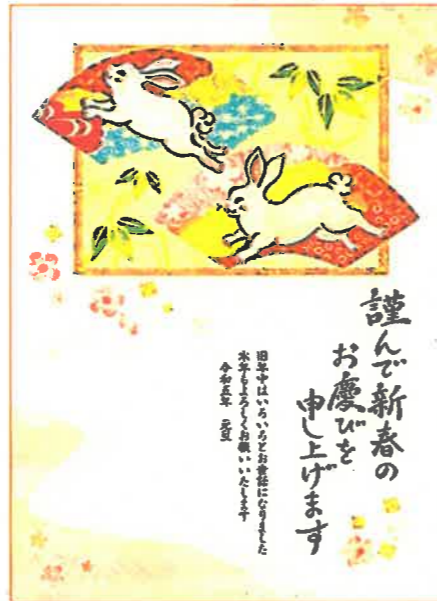 謹んで新春の
お慶びを
申し上げます
旧年中はいろいろとお世話になりました
本年もよろしくお願いいたします
令和五年 元旦